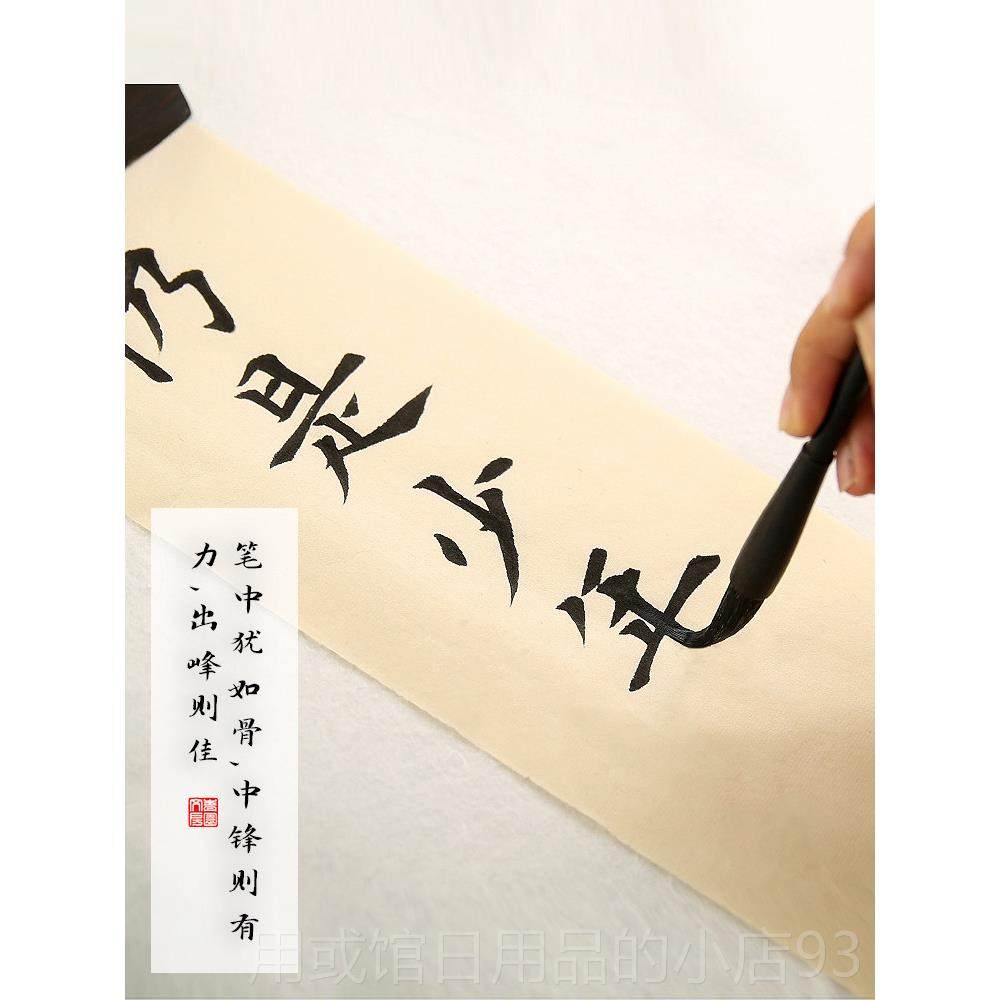 仍是少年
笔中犹如骨、中锋则有
力、出峰则佳
用或馆日用品的小店93